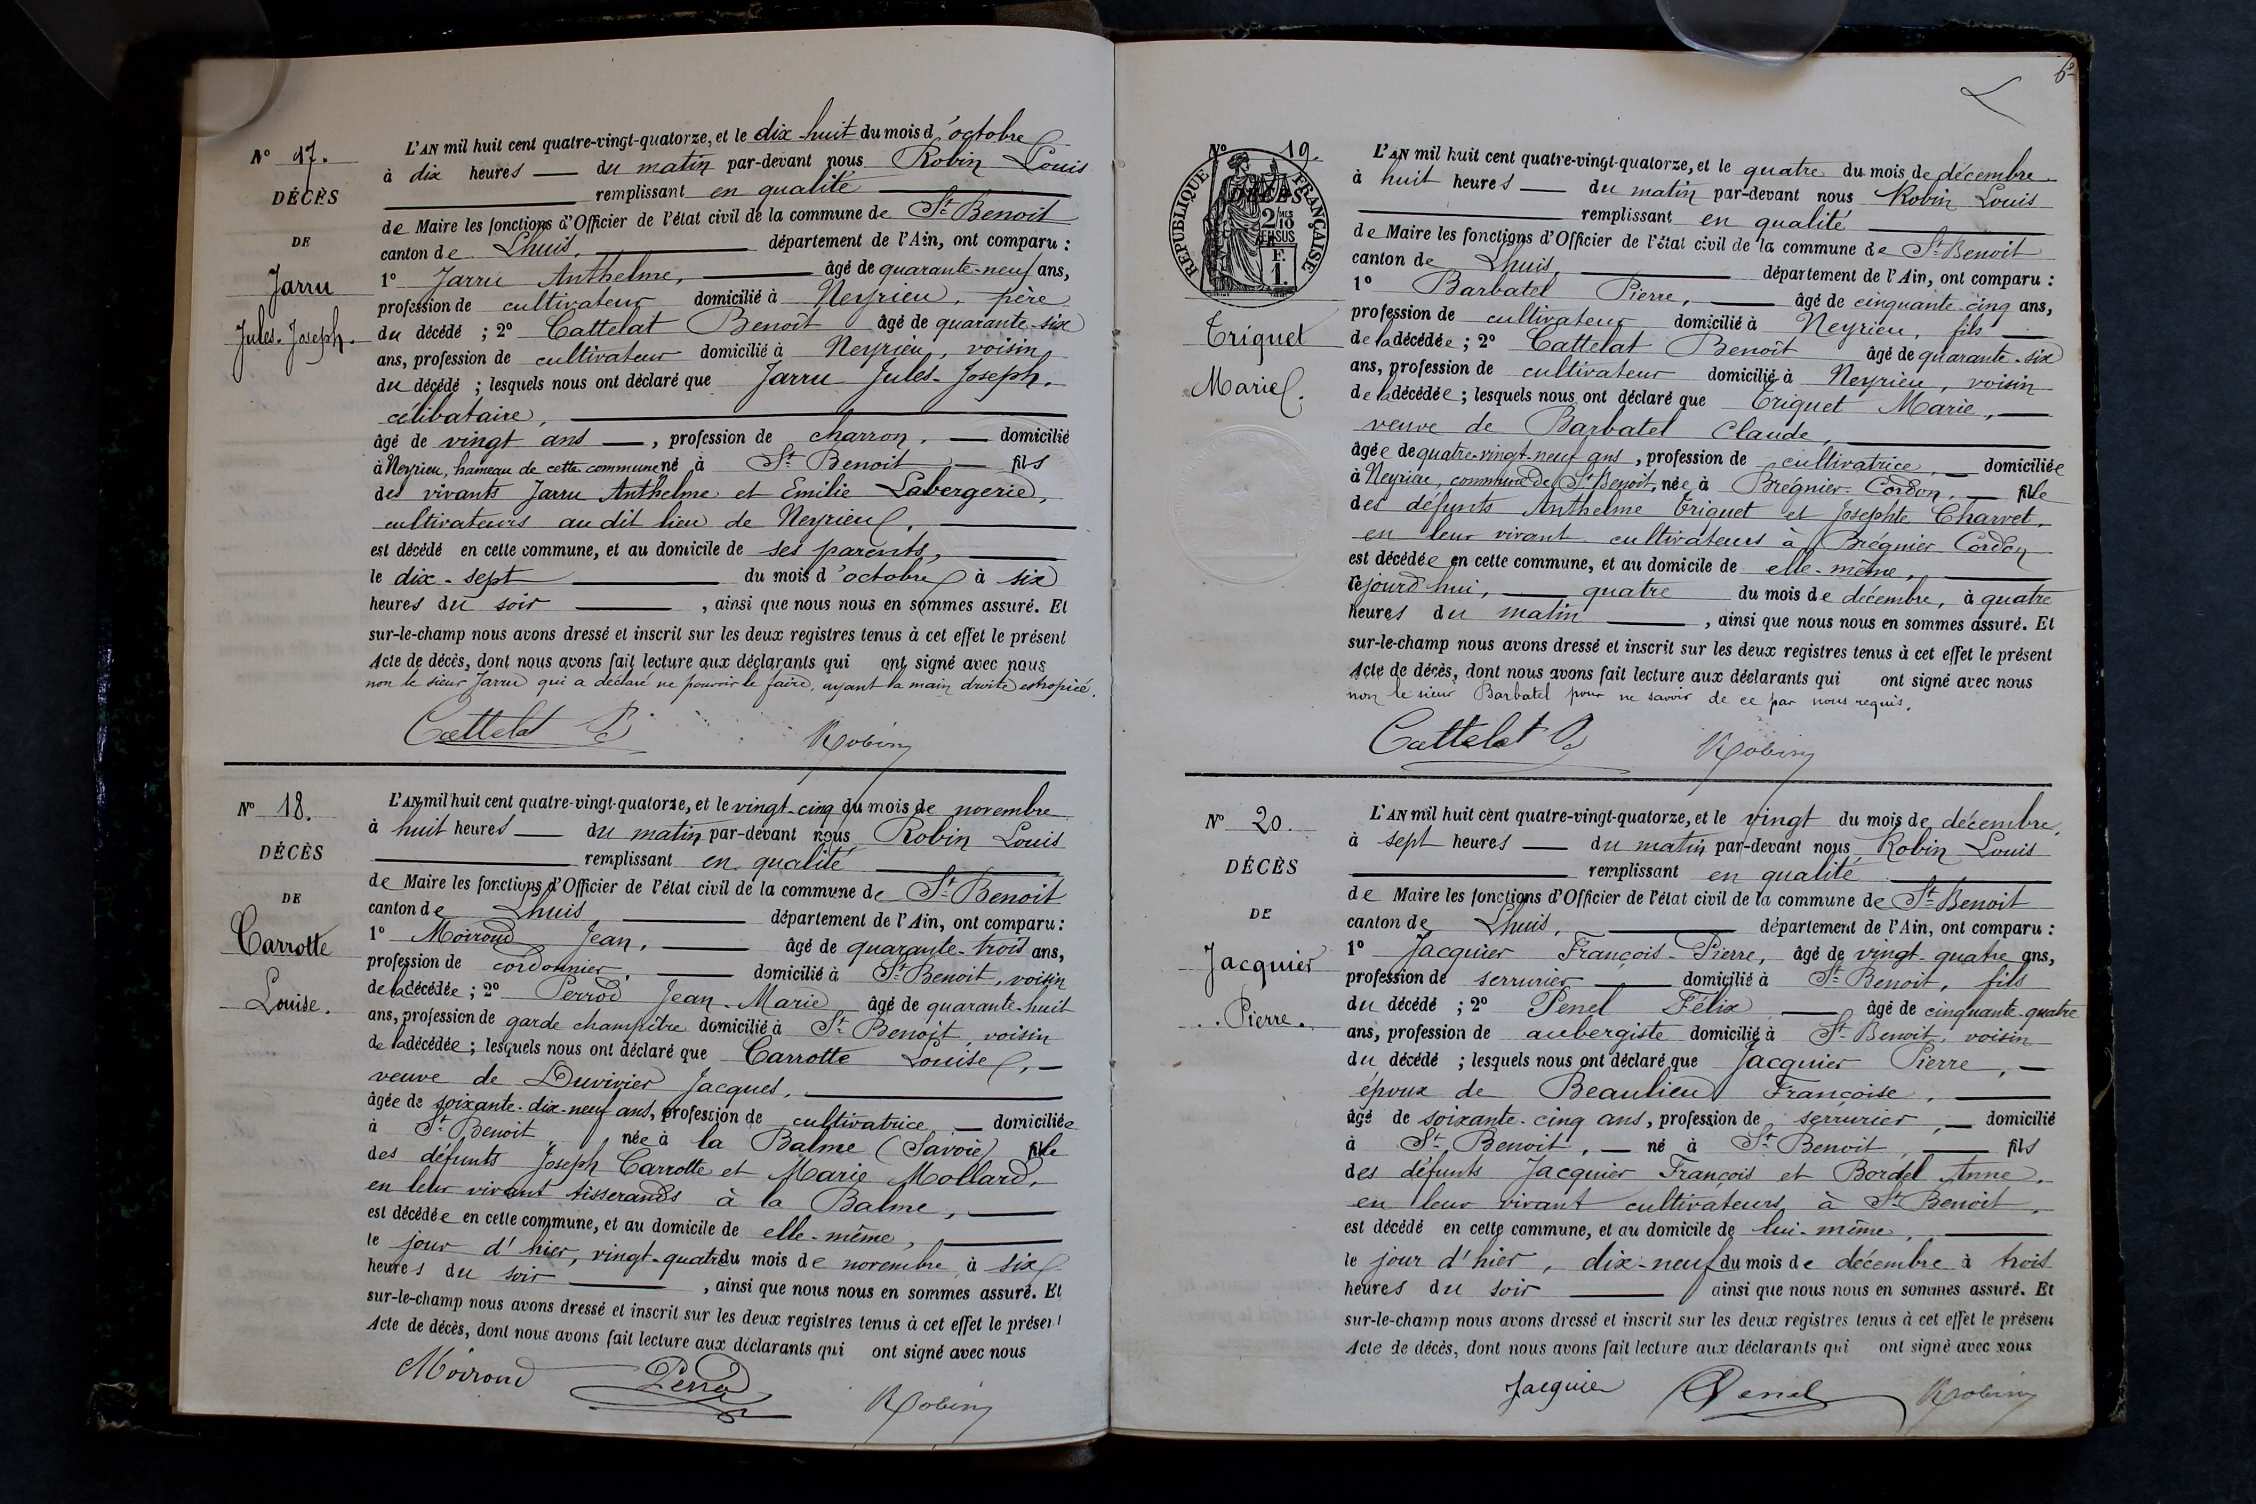 N° 17.
DÉCÈS
DE
Jarru
Jules-Joseph.
L'AN mil huit cent quatre-vingt-quatorze, et le dix-huit du mois d'octobre
à dix heures du matin par-devant nous Robin Louis
remplissant en qualité
de Maire les fonctions d'Officier de l'état civil de la commune de St Benoit
canton de Lhuis, département de l'Ain, ont comparu :
1° Jarru Anthelme, âgé de quarante-neuf ans,
profession de cultivateur domicilié à Neyrieu, père
du décédé ; 2° Cattelat Benoît âgé de quarante-six
ans, profession de cultivateur domicilié à Neyrieu, voisin
du décédé ; lesquels nous ont déclaré que Jarru Jules-Joseph,
célibataire,
âgé de vingt ans, profession de charron, domicilié
à Neyrieu, hameau de cette commune né à St Benoit fils
des vivants Jarru Anthelme et Emilie Labergerie,
cultivateurs au dit lieu de Neyrieu,
est décédé en cette commune, et au domicile de ses parents,
le dix-sept du mois d'octobre à six
heures du soir, ainsi que nous nous en sommes assuré. Et
sur-le-champ nous avons dressé et inscrit sur les deux registres tenus à cet effet le présent
Acte de décès, dont nous avons fait lecture aux déclarants qui ont signé avec nous
non le sieur Jarru qui a déclaré ne pouvoir le faire, ayant la main droite estropiée.
Cattelat B Robin
N° 18.
DÉCÈS
DE
Carrotte
Louise.
L'AN mil huit cent quatre-vingt-quatorze, et le vingt-cinq du mois de novembre
à huit heures du matin par-devant nous Robin Louis
remplissant en qualité
de Maire les fonctions d'Officier de l'état civil de la commune de St Benoit
canton de Lhuis département de l'Ain, ont comparu :
1° Moiroud Jean, âgé de quarante-trois ans,
profession de cordonnier, domicilié à St Benoit, voisin
de la décédée ; 2° Perrod Jean-Marie âgé de quarante-huit
ans, profession de garde champêtre domicilié à St Benoit, voisin
de la décédée ; lesquels nous ont déclaré que Carrotte Louise,
veuve de Duvivier Jacques,
âgée de soixante-dix-neuf ans, profession de cultivatrice, domiciliée
à St Benoit, née à la Balme (Savoie) fille
des défunts Joseph Carrotte et Marie Mollard,
en leur vivant tisserands à la Balme,
est décédée en cette commune, et au domicile de elle-même,
le jour d'hier, vingt-quatre du mois de novembre à six
heures du soir, ainsi que nous nous en sommes assuré. Et
sur-le-champ nous avons dressé et inscrit sur les deux registres tenus à cet effet le présent
Acte de décès, dont nous avons fait lecture aux déclarants qui ont signé avec nous
Moiroud Perrod Robin
N° 19.
DÉCÈS
RÉPUBLIQUE FRANÇAISE
2/10MES
EN SUS
F.
1.
Triquet
Marie.
L'AN mil huit cent quatre-vingt-quatorze, et le quatre du mois de décembre
à huit heures du matin par-devant nous Robin Louis
remplissant en qualité
de Maire les fonctions d'Officier de l'état civil de la commune de St Benoit
canton de Lhuis, département de l'Ain, ont comparu :
1° Barbatel Pierre, âgé de cinquante-cinq ans,
profession de cultivateur domicilié à Neyrieu, fils
de la décédée ; 2° Cattelat Benoît âgé de quarante-six
ans, profession de cultivateur domicilié à Neyrieu, voisin
de la décédée ; lesquels nous ont déclaré que Triquet Marie,
veuve de Barbatel Claude,
âgée de quatre-vingt-neuf ans, profession de cultivatrice, domiciliée
à Neyrieu, commune de St Benoit, née à Brégnier-Cordon, fille
des défunts Anthelme Triquet et Josephte Charvet,
en leur vivant cultivateurs à Brégnier Cordon
est décédée en cette commune, et au domicile de elle-même,
cejourd'hui, quatre du mois de décembre, à quatre
heures du matin, ainsi que nous nous en sommes assuré. Et
sur-le-champ nous avons dressé et inscrit sur les deux registres tenus à cet effet le présent
Acte de décès, dont nous avons fait lecture aux déclarants qui ont signé avec nous
non le sieur Barbatel pour ne savoir de ce par nous requis.
Cattelat B Robin
N° 20.
DÉCÈS
DE
Jacquier
Pierre.
L'AN mil huit cent quatre-vingt-quatorze, et le vingt du mois de décembre,
à sept heures du matin par-devant nous Robin Louis
remplissant en qualité
de Maire les fonctions d'Officier de l'état civil de la commune de St Benoit
canton de Lhuis, département de l'Ain, ont comparu :
1° Jacquier François-Pierre, âgé de vingt-quatre ans,
profession de serrurier domicilié à St Benoit, fils
du décédé ; 2° Penel Félix âgé de cinquante-quatre
ans, profession de aubergiste domicilié à St Benoit, voisin
du décédé ; lesquels nous ont déclaré que Jacquier Pierre,
époux de Beaulieu Françoise,
âgé de soixante-cinq ans, profession de serrurier, domicilié
à St Benoit, né à St Benoit, fils
des défunts Jacquier François et Bordel Anne,
en leur vivant cultivateurs à St Benoit,
est décédé en cette commune, et au domicile de lui-même,
le jour d'hier, dix-neuf du mois de décembre à trois
heures du soir ainsi que nous nous en sommes assuré. Et
sur-le-champ nous avons dressé et inscrit sur les deux registres tenus à cet effet le présent
Acte de décès, dont nous avons fait lecture aux déclarants qui ont signé avec nous
Jacquier Penel Robin